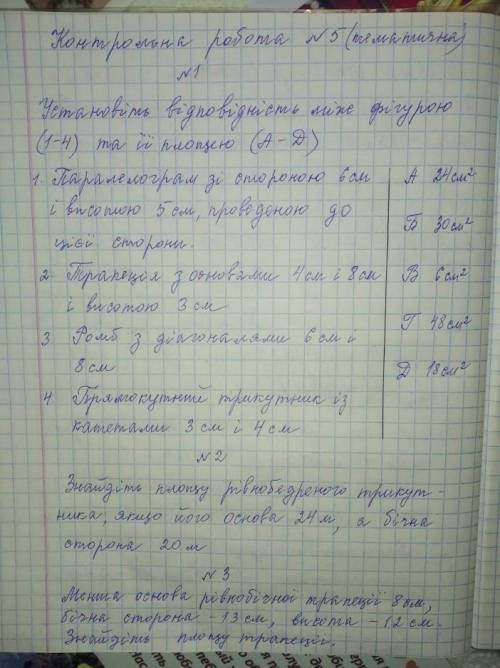 Контрольна робота №5 (тематична)
№1
Установіть відповідність між фігурою
(1-4) та її площею (А-Д)
1. Паралелограм зі стороною 6см
і висотою 5см, проведеною до
цієї сторони.
2 Трапеція з основами 4см і 8см
і висотою 3см
3 Ромб з діагоналями 6см і
8см
4 Прямокутний трикутник із
катетами 3см і 4см
А 24см²
Б 30см²
В 6см²
Г 48см²
Д 18см²
№2
Знайдіть площу рівнобедреного трикут-
ника, якщо його основа 24м, а бічна
сторона 20м
№3
Менша основа рівнобічної трапеції 8см,
бічна сторона - 13см, висота - 12см.
Знайдіть площу трапеції.